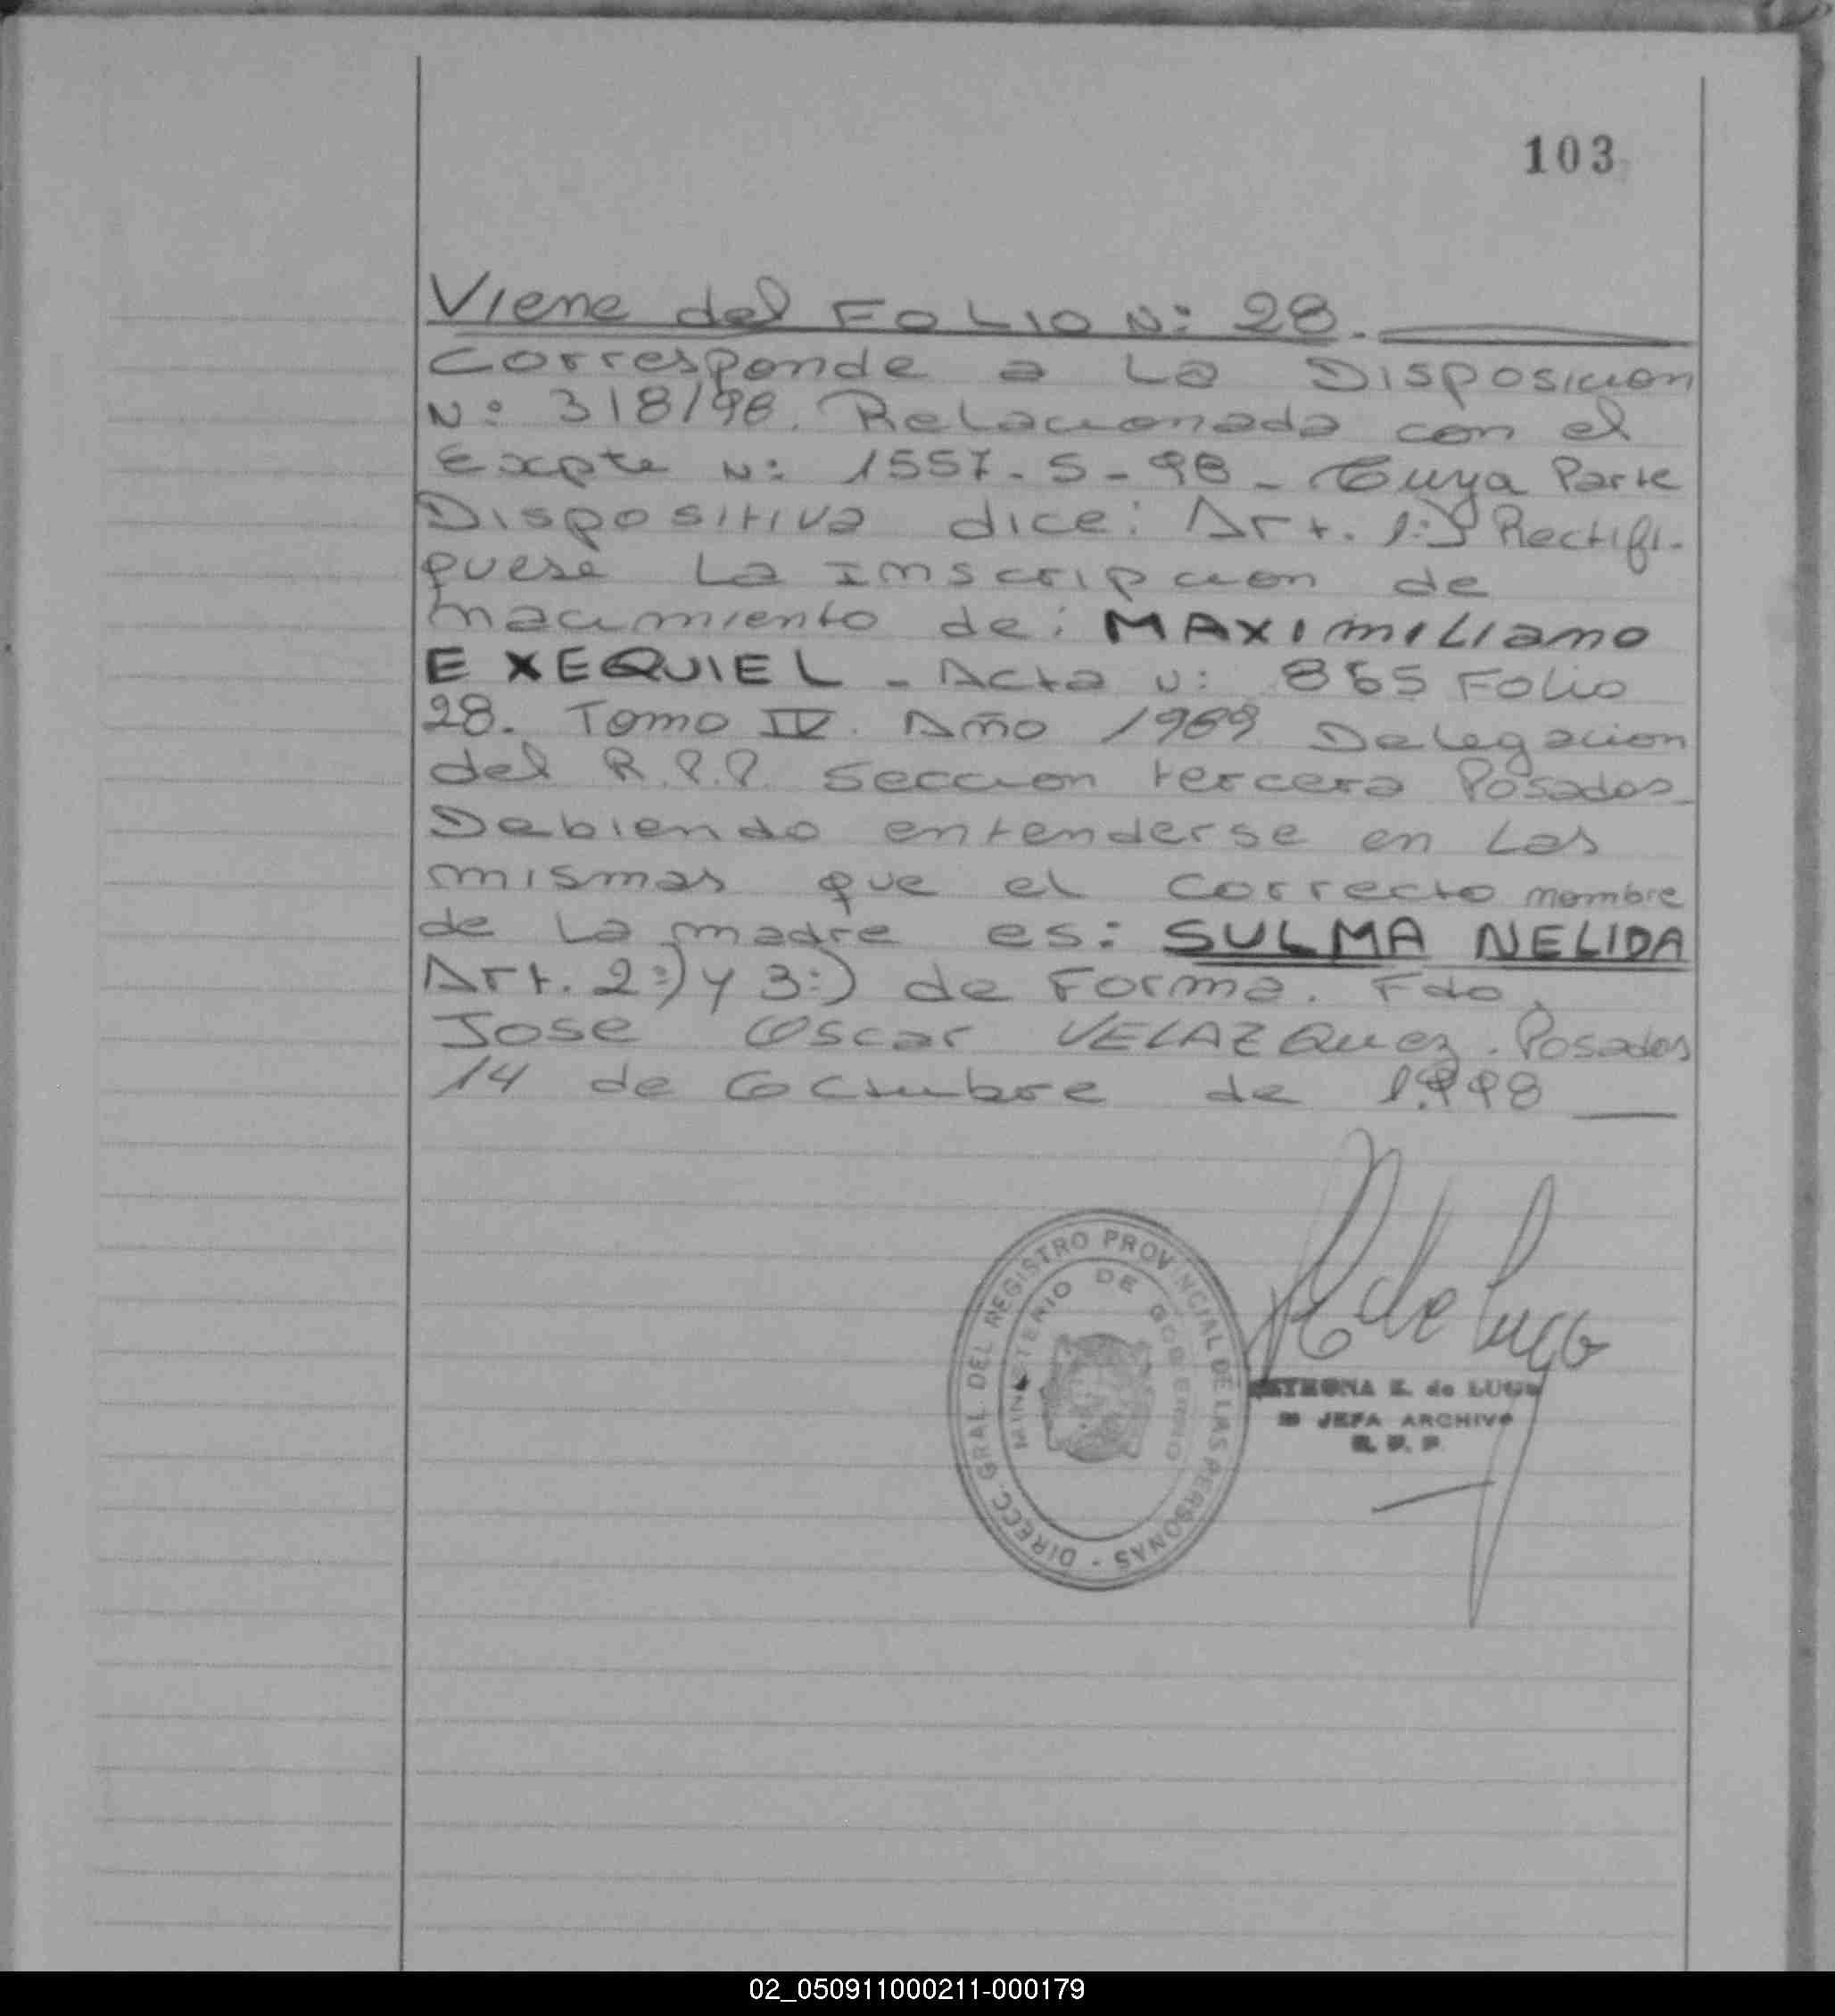 103
Viene del FOLIO N: 28.
Corresponde a La Disposicion
N: 318/98. Relacionada con el
Expte N: 1557-S-98- Cuya Parte
Dispositiva dice: Art. 1:) Rectifi-
quese La Inscripcion de
nacimiento de: MAXIMILIano
EXEQUIEL - Acta N: 865 Folio
28. Tomo IV. Año 1989 Delegacion
del R.P.P. Seccion tercera Posadas
Debiendo entenderse en Las
mismas que el correcto nombre
de La madre es: SULMA NELIDA
Art. 2:) y 3:) de Forma. Fdo.
Jose Oscar VELAZQuez. Posadas
14 de Octubre de 1.998
DIRECC. GRAL. DEL REGISTRO PROVINCIAL DE LAS PERSONAS -
MINISTERIO DE GOBIERNO
de Lugo
E. de LUGO
JEFA ARCHIVO
R. P. P.
02_050911000211-000179